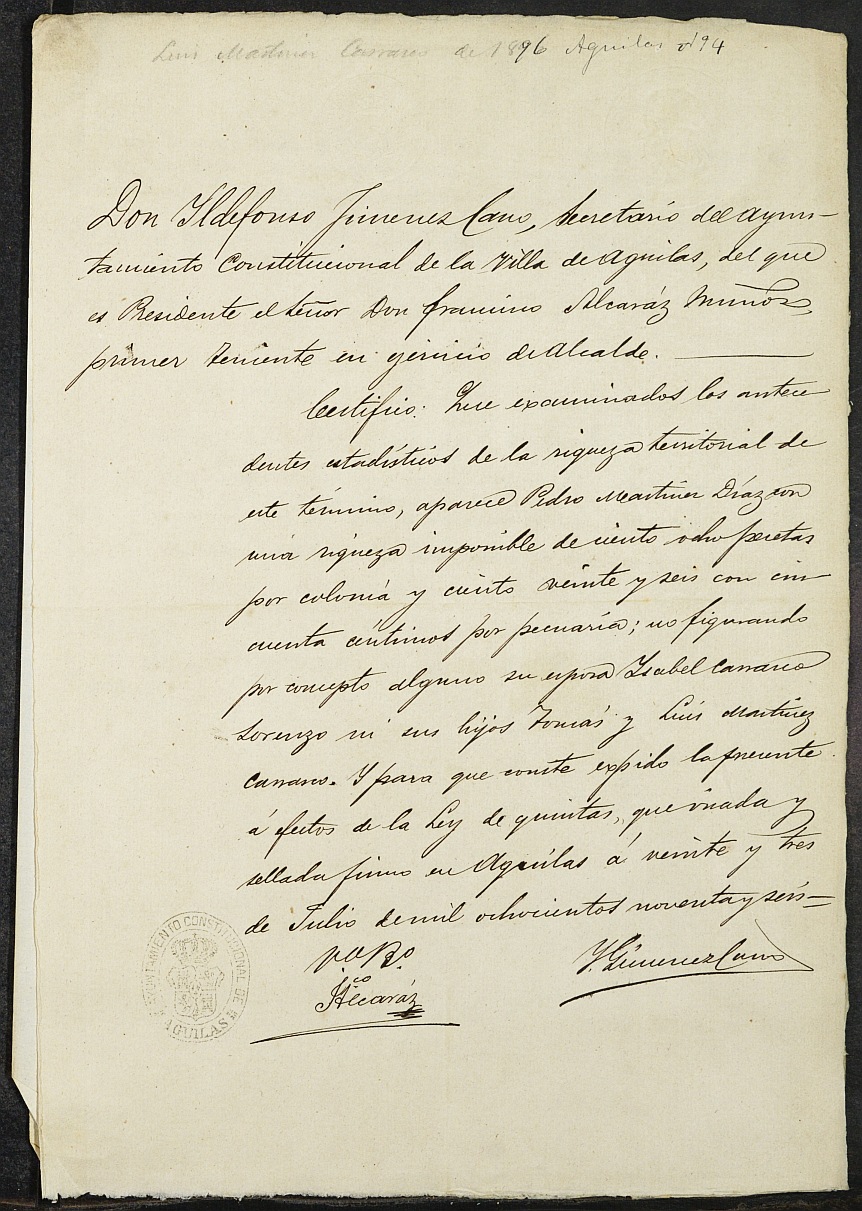 Luis Martinez Carrasco de 1896 Aguilas nº 94
Don Ildefonso Jimenez Cano, Secretario del ayun-
tamiento Constitucional de la Villa de Aguilas, del que
es Presidente el Señor Don Francisco Alcaráz Muñóz,
primer teniente en ejercicio de Alcalde.
Certifico: Que examinados los antece
dentes estadísticos de la riqueza territorial de
este término, aparece Pedro Martinez Díaz con
una riqueza imponible de ciento ocho pesetas
por colonia y ciento veinte y seis con cin-
cuenta céntimos por pecuaria; no figurando
por concepto alguno su esposa Ysabel Carrasco
Lorenzo ni sus hijos Tomás y Luis Martinez
Carrasco. Y para que conste expido la presente
á efectos de la Ley de quintas, que visada y
sellada firmo en Aguilas á veinte y tres
de Julio de mil ochocientos noventa y seis-
Vº Bº
Y. Gimenez Cano
Fco Alcaráz
AYUNTAMIENTO CONSTITUCIONAL DE AGUILAS